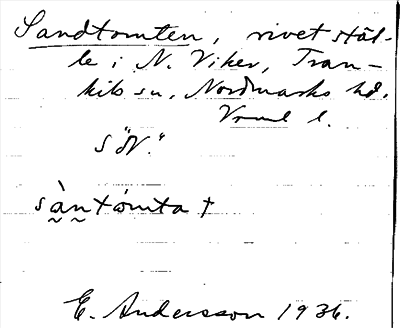 Sandtomten, rivet stäl-
le i N. Viker, Tran-
kils sn, Nordmarks hd.
Vrml l.
s "N."
sàntómta †
E. Andersson 1936.